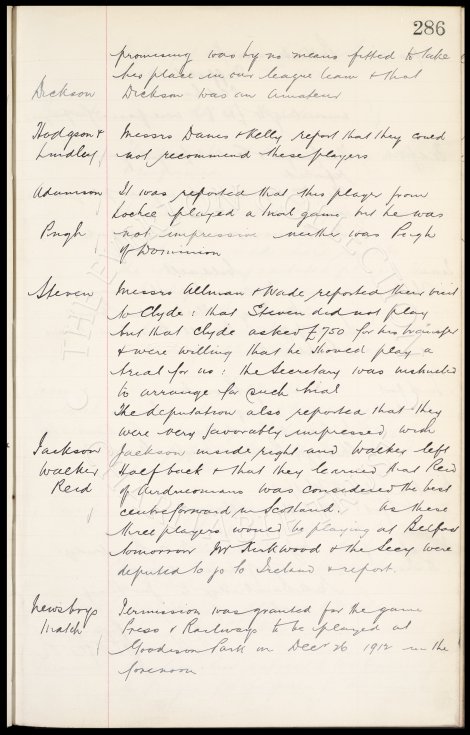 286
promising was by no means fitted to take
his place in our league team & that
Dickson Dickson was an amateur
Hodgson & Messrs Davies & Kelly report that they could
Lindley not recommend these players
Adamson It was reported that this player from
Lochee played a trial game but he was
Pugh not impressive neither was Pugh
of Dominion
Steven Messrs Allman & Wade reported their visit
to Clyde: that Steven did not play
but that Clyde asked £750 for his transfer
& were willing that he should play a
trial for us: the Secretary was instructed
to arrange for such trial
The deputation also reported that they
were very favorably impressed with
Jackson Jackson inside right and Walker left
Walker Half back & that they learned that Reid
Reid of Airdrieonians was considered the best
centre forward in Scotland. As these
three players would be playing at Belfast
tomorrow Mr Kirkwood & the Secy were
deputed to go to Ireland & report.
Newsboys Permission was granted for the game
Match Press & Railways to be played at
Goodison Park on Decr 26 1912 in the
forenoon